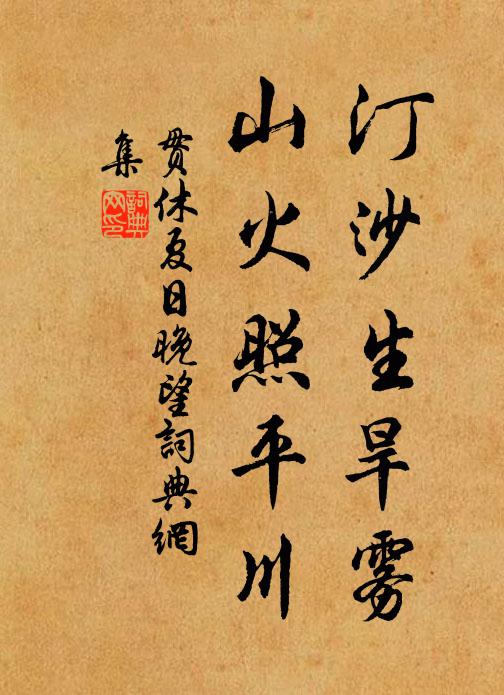 汀沙生旱雾
山火照平川
贯休夏日晚望词典網
集
詞典
网印